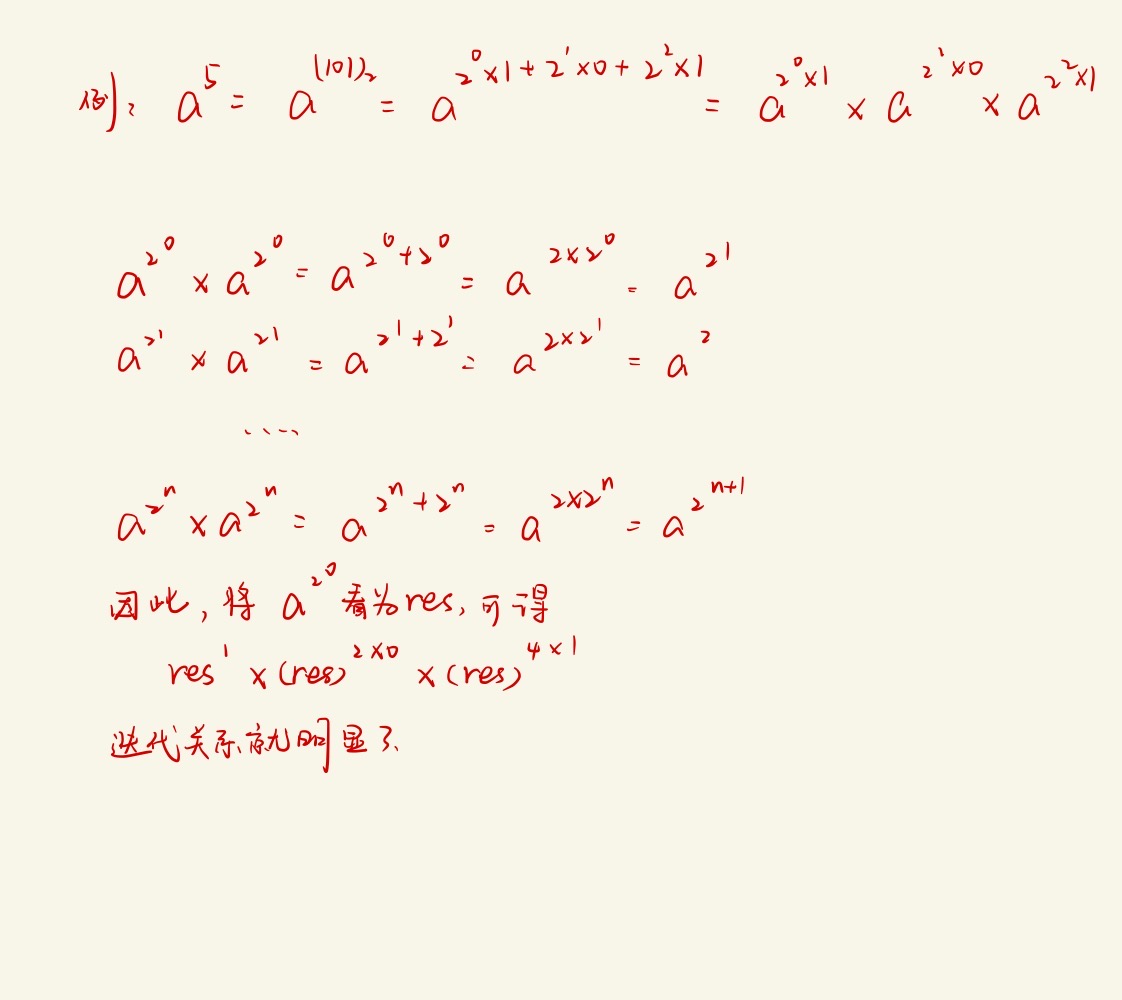 例: a^5 = a^(101)₂ = a^{2^0×1+2^1×0+2^2×1} = a^{2^0×1} × a^{2^1×0} × a^{2^2×1}
a^{2^0} × a^{2^0} = a^{2^0+2^0} = a^{2×2^0} = a^{2^1}
a^{2^1} × a^{2^1} = a^{2^1+2^1} = a^{2×2^1} = a^2
....
a^{2^n} × a^{2^n} = a^{2^n+2^n} = a^{2×2^n} = a^{2^{n+1}}
因此, 将 a^{2^0} 看为res, 可得
res^1 × (res)^{2×0} × (res)^{4×1}
迭代关系就明显了.